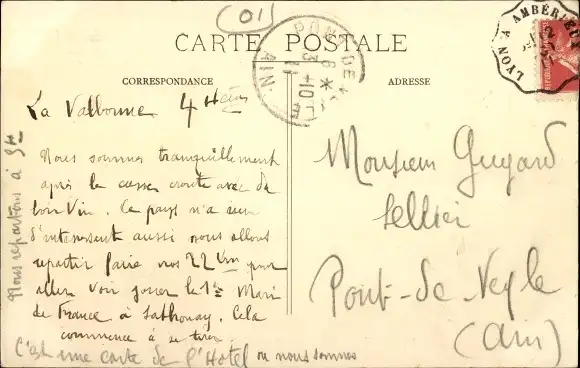 (01)
CARTE POSTALE
CORRESPONDANCE
ADRESSE
LYON À AMBÉRIEU
PONT-DE-VEYLE
AIN
La Valbonne 4 Heures
Nous sommes tranquillement
après le casser croute avec du
bon Vin. Le pays n'a rien
d'interessent aussi nous allons
repartir faire nos 22 Km pour
aller voir jouer le 1er Mari
de France à Sathonay. Cela
commence à se tirer
C'est une carte de l'Hotel ou nous sommes
Nous repartons à 5H
Monsieur Guyard
Sellier
Pont-de-Veyle
(Ain)